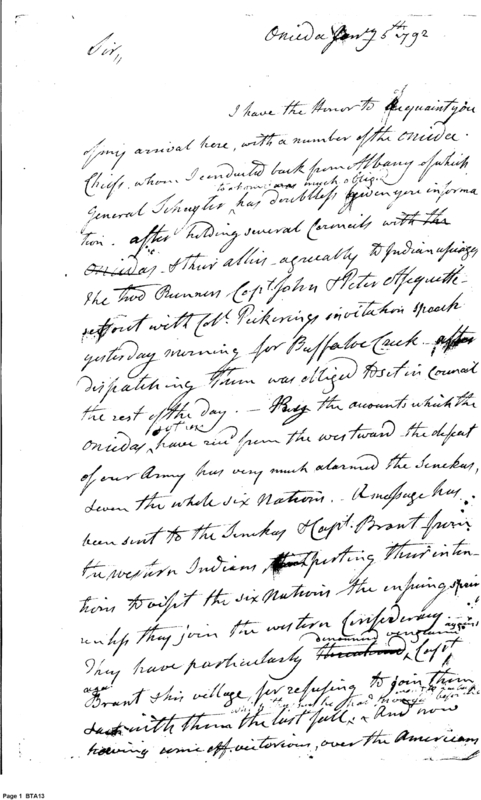 Onieda Jany 5th 1792
Sir,,
I have the Honor to acquaint you
of my arrival here, with a number of the Onieda
Chiefs whom I conducted back from Albany of which
to whom much obliged
General Schuyler has doubtless given you informa
tion. after holding several Councils with the
Oniedas & their allies agreeably to Indian usages
the two Runners Capt. John & Peter
set out with Col. Pickerings invitation speach
yesterday morning for Buffaloe Creek after
dispatching them was obliged to set in Council
the rest of the day. — By the accounts which the
Oniedas have recd from the westward the defeat
of our Army has very much alarmed the Senekas,
& even the whole six Nations. A message has
been sent to the Senekas & Capt. Brant from
the western Indians, purporting their inten
tions to visit the six Nations the ensuing
unless they join the western Confederacy
denounced vengeance against
They have particularly threatened, Capt
Brant & this village for refusing to join them
with them the last fall. And now
having come off victorious, over the Americans
Page 1 BTA13